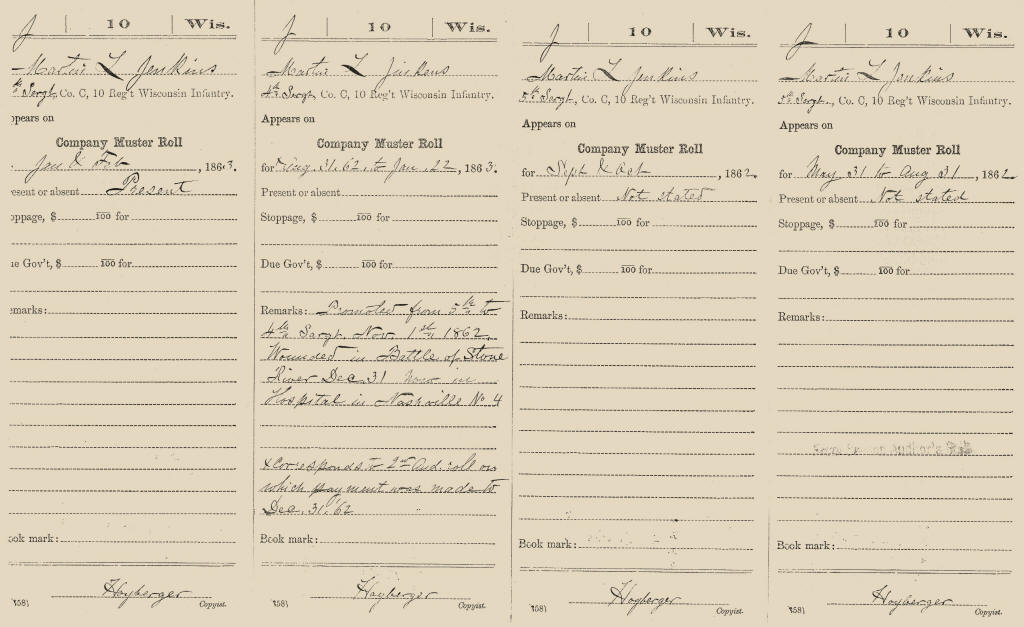 J | 10 | Wis.
Martin L Jenkins
th Sergt., Co. C, 10 Reg't Wisconsin Infantry.
ppears on
Company Muster Roll
Jan & Feb, 1863.
esent or absent Present
oppage, $ 100 for
ue Gov't, $ 100 for
emarks:
ook mark:
Hoyberger
(358) Copyist.
J | 10 | Wis.
Martin L Jenkins
4th Sergt., Co. C, 10 Reg't Wisconsin Infantry.
Appears on
Company Muster Roll
for x Aug. 31, 62, to Jan. 22, 1863.
Present or absent
Stoppage, $ 100 for
Due Gov't, $ 100 for
Remarks: Promoted from 5th to
4th Sargt. Nov. 1st 1862.
Wounded in Battle of Stone
River Dec 31 now in
Hospital in Nashville No 4
x Corresponds to 2nd Aud. roll on
which payment was made to
Dec. 31, '62
Book mark:
Hoyberger
(358) Copyist.
J | 10 | Wis.
Martin L Jenkins
5th Sergt., Co. C, 10 Reg't Wisconsin Infantry.
Appears on
Company Muster Roll
for Sept & Oct, 1862.
Present or absent Not stated
Stoppage, $ 100 for
Due Gov't, $ 100 for
Remarks:
Book mark:
Hoyberger
(358) Copyist.
J | 10 | Wis.
Martin L Jenkins
5th Sergt., Co. C, 10 Reg't Wisconsin Infantry.
Appears on
Company Muster Roll
for May 31 to Aug 31, 1862.
Present or absent Not stated
Stoppage, $ 100 for
Due Gov't, $ 100 for
Remarks:
Book mark:
Hoyberger
(358) Copyist.